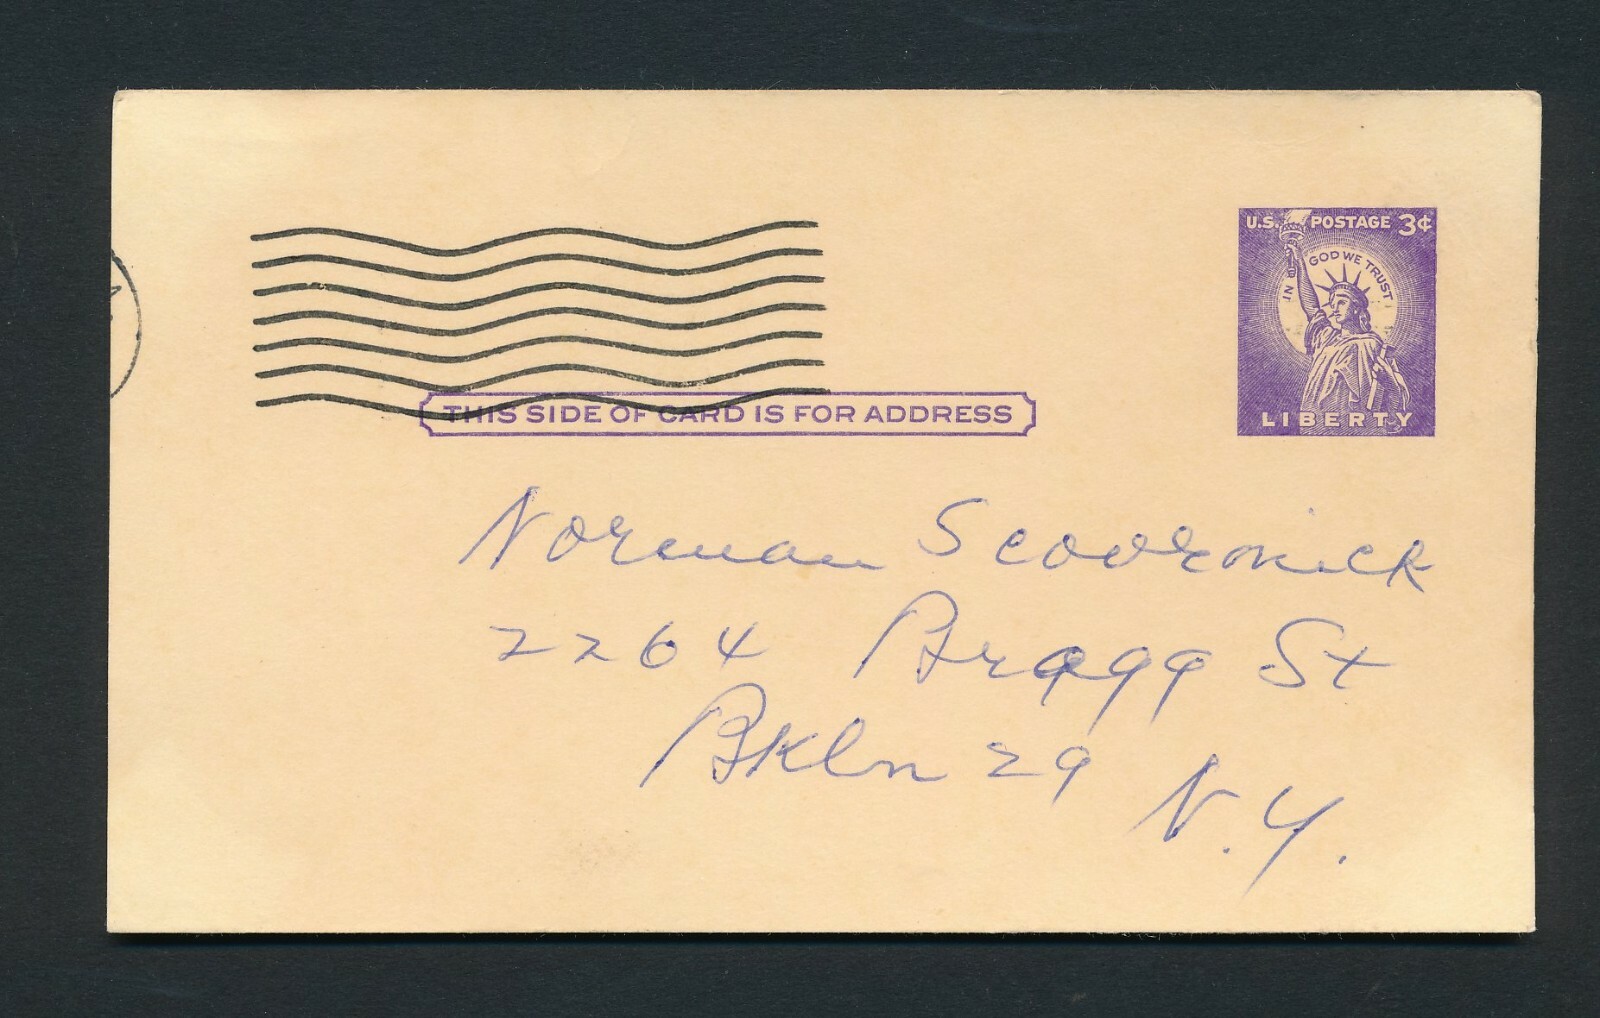 U.S. POSTAGE 3¢
IN GOD WE TRUST
LIBERTY
THIS SIDE OF CARD IS FOR ADDRESS
Norman Scovronick
2264 Bragg St
Bkln 29
N.Y.